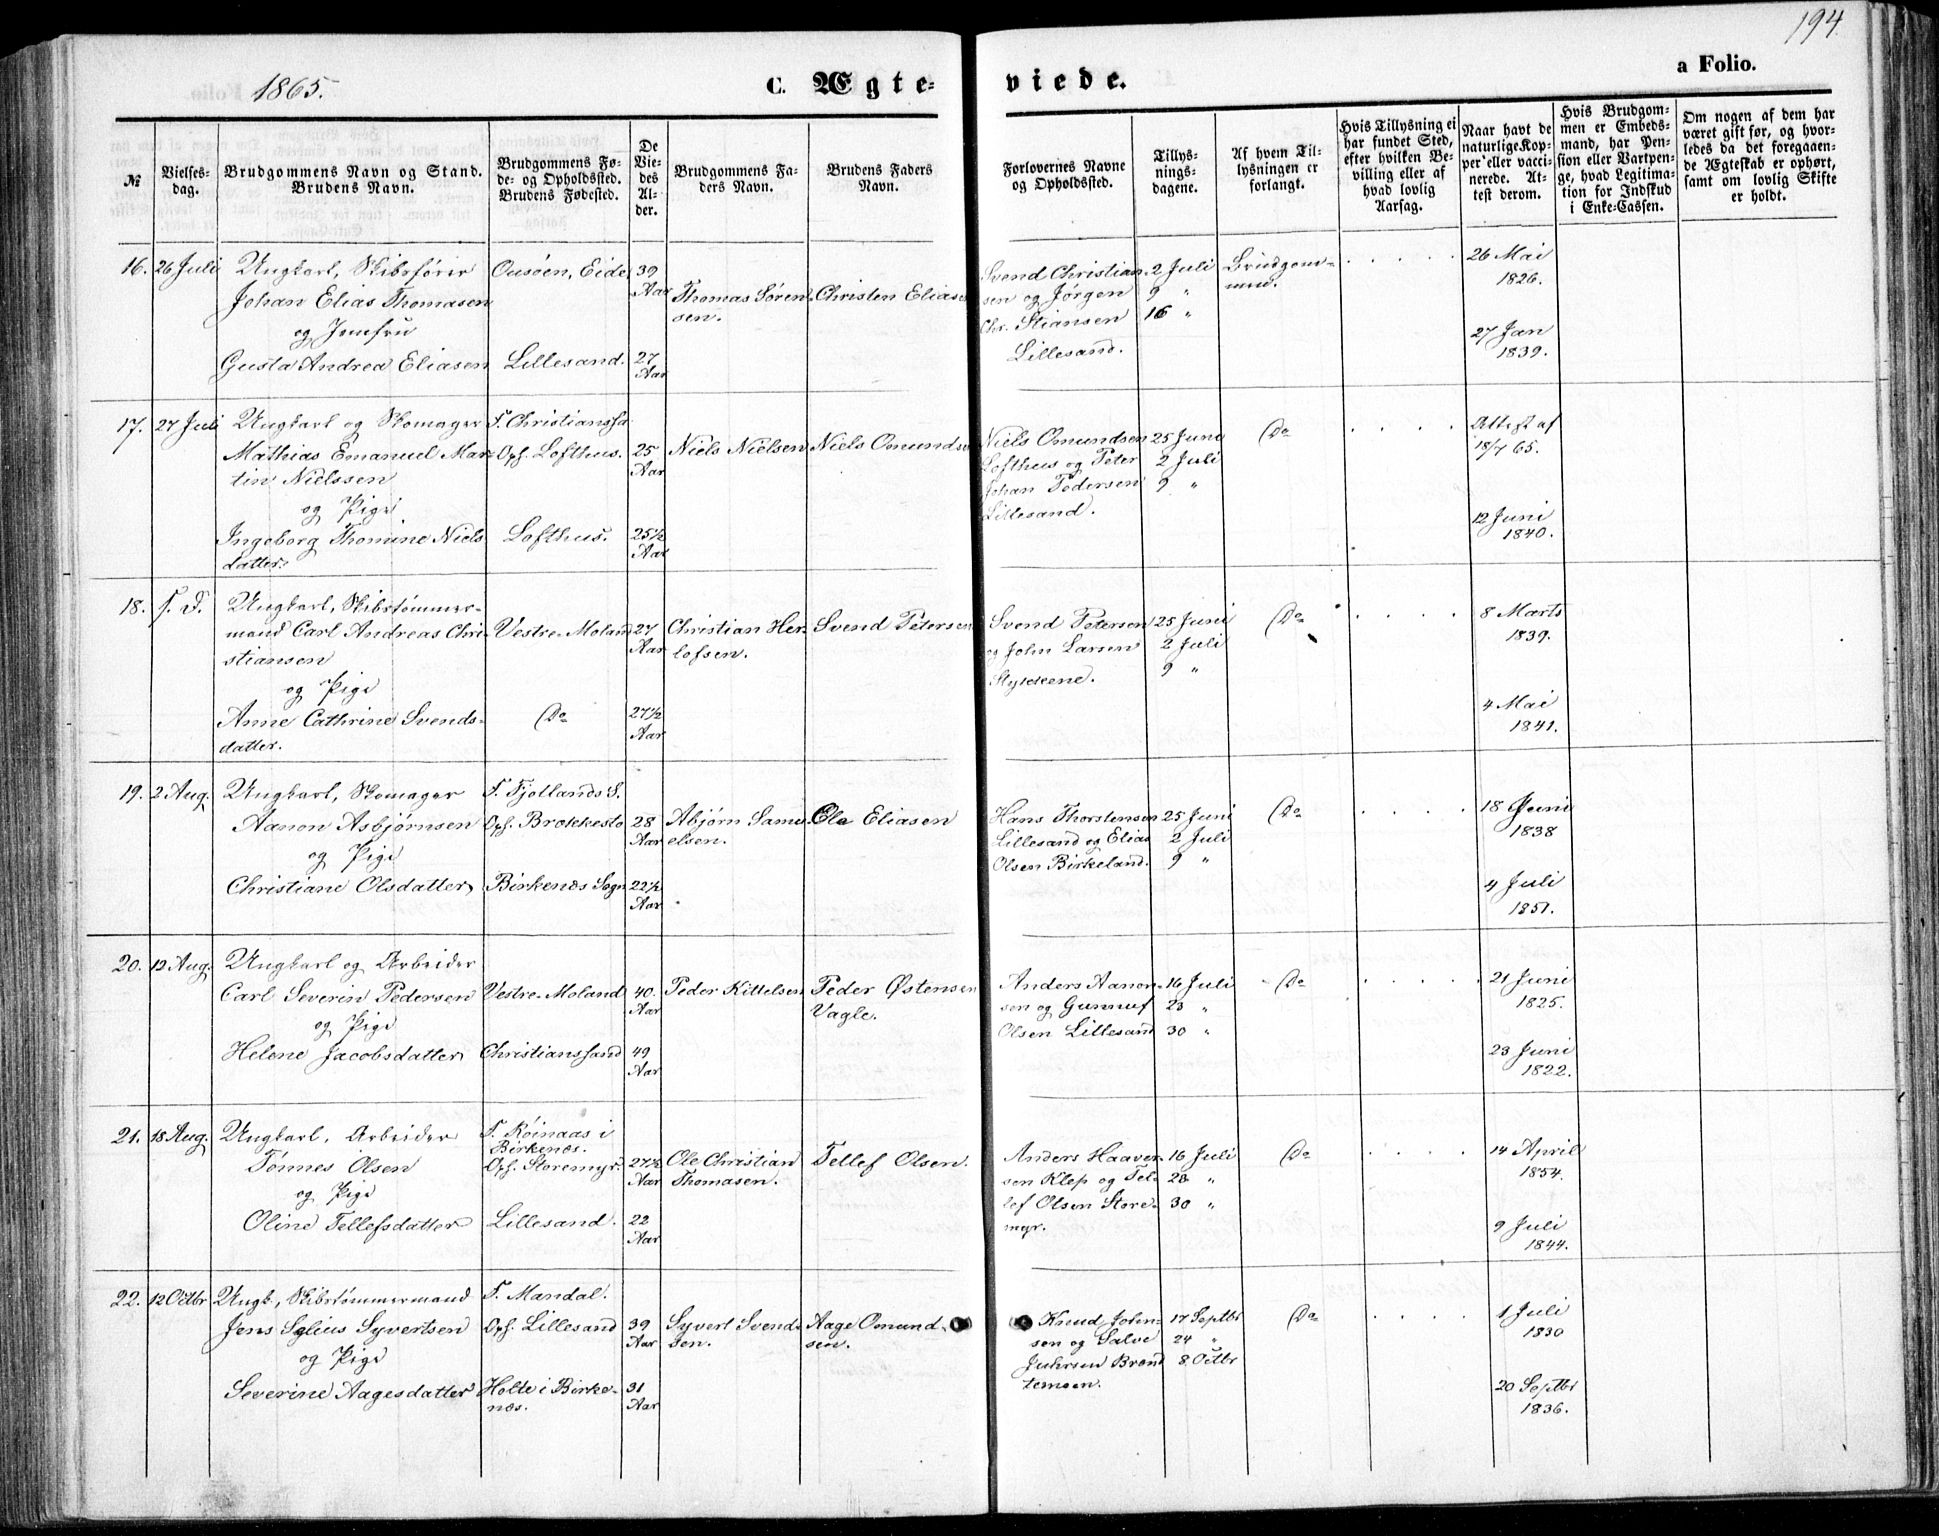 1865.
C. Ægte-
viede.
194.
a Folio.
№
Vielses-
dag.
Brudgommens Navn og Stand.
Brudens Navn.
Brudgommens Fø-
de- og Opholdssted.
Brudens Fødested.
De
Vie-
des
Al-
der.
Brudgommens Fa-
ders Navn.
Brudens Faders
Navn.
Forlovernes Navne
og Opholdssted.
Tillys-
nings-
dagene.
Af hvem Til-
lysningen er
forlangt.
Hvis Tillysning ei
har fundet Sted,
efter hvilken Be-
villing eller af
hvad lovlig
Aarsag.
Naar havt de
naturlige Kop-
per eller vacci-
nerede. At-
test derom.
Hvis Brudgom-
men er Embeds-
mand, har Pen-
sion eller Vartpen-
ge, hvad Legitima-
tion for Indskud
i Enke-Cassen.
Om nogen af dem har
været gift før, og hvor-
ledes da det foregaaen-
de Ægteskab er ophørt,
samt om lovlig Skifte
er holdt.
16. 26 Juli
Ungkarl, Skibsfører
Johan Elias Thomasen
og Jomfru
Gusta Andrea Eliasen
Ousöen, Eide
Lillesand.
39
Aar
27
Aar
Thomas Sören-
sen.
Christen Eliasen
Svend Christian-
sen og Jörgen
Chr. Stiansen
Lillesand.
2 Juli
9 "
16 "
Brudgom-
men.
26 Mai
1826.
27 Jan
1839.
17. 27 Juli
Ungkarl og Skomager
Mathias Emanuel Mar-
tin Nielssen
og Pige
Ingeborg Thomine Niels
datter.
F. Christianssa
Oph. Lofthus.
Lofthus.
25
Aar
25½
Aar
Niels Nielsen
Niels Omundsen
Niels Omundsen
Lofthus og Peter
Johan Pedersen
Lillesand.
25 Juni
2 Juli
9 "
Do
Attest af
18/7 65.
12 Juni
1840.
18. s. D.
Ungkarl, Skibstömmer-
mand Carl Andreas Chri-
stiansen
og Pige
Anne Cathrine Svends-
datter.
Vestre-Moland
Do
27
Aar
27½
Aar
Christian Her-
lofsen.
Svend Petersen
Svend Petersen
og John Larsen
Stykkene.
25 Juni
2 Juli
9 "
Do
8 Marts
1839.
4 Mai
1841.
19. 2 Aug.
Ungkarl, Skomager
Aanon Asbjörnsen
og Pige
Christiane Olsdatter
F. Fjotlands S.
Oph. Brækkesto
Birkenæs Sogn
28
Aar
22½
Aar
Abjörn Samu-
elsen.
Ole Eliasen
Hans Thorstensen
Lillesand og Elias
Olsen Birkeland.
25 Juni
2 Juli
9 "
Do
18 Juni
1838
4 Juli
1851.
20. 12 Aug.
Ungkarl og Arbeider
Carl Severin Pedersen
og Pige
Helene Jacobsdatter
Vestre-Moland
Christianssand
40.
Aar
49
Aar
Peder Kittelsen
Peder Østensen
Vagle.
Anders Aanon-
sen og Gunnuf
Olsen Lillesand
16 Juli
23 "
30 "
Do
21 Juni
1825.
23 Juni
1822.
21. 18 Aug.
Ungkarl, Arbeider
Tönnes Olsen
og Pige
Oline Tellefsdatter
F. Röinaas i
Birkenæs.
Oph. Storemyr.
Lillesand.
27½
Aar
22
Aar
Ole Christian
Thomasen.
Tellef Olsen.
Anders Haaver-
sen Klep og Tel-
lef Olsen Store-
myr.
16 Juli
23 "
30 "
Do
14 April
1854.
9 Juli
1844.
22. 12 Octbr
Ungk., Skibstömmermand
Jens Selius Syvertsen
og Pige
Severine Aagesdatter
F. Mandal.
Oph. Lillesand
Holte i Birke-
næs.
39
Aar
31
Aar
Syvert Svend-
sen.
Aage Omund-
sen.
Knud John-
sen og Salve
Brend
temoen.
17 Septbr
24 "
8 Octbr
Do
1 Juli
1830
20 Septbr
1836.